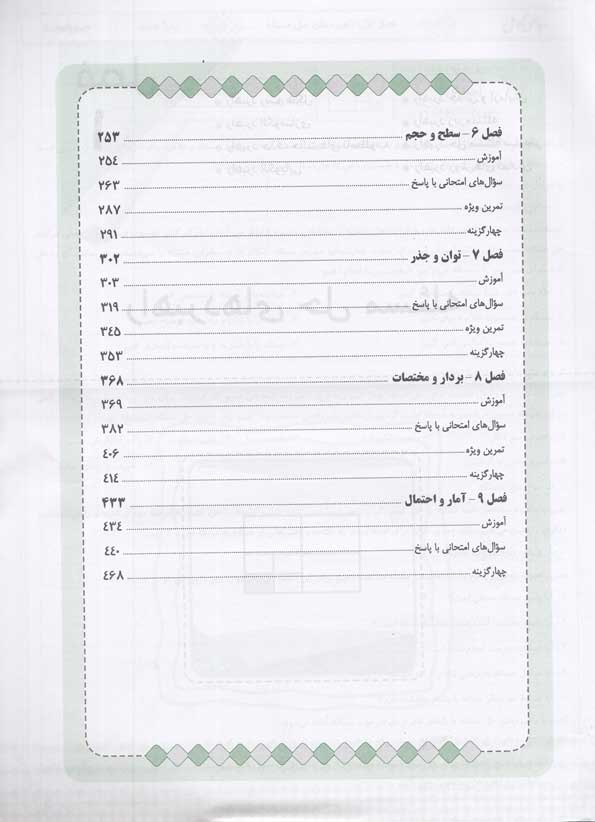 فصل ۶ – سطح و حجم ........ ۲۵۳
آموزش ........ ۲۵۴
سؤال‌های امتحانی با پاسخ ........ ۲۶۳
تمرین ویژه ........ ۲۸۷
چهارگزینه ........ ۲۹۱
فصل ۷ – توان و جذر ........ ۳۰۲
آموزش ........ ۳۰۳
سؤال‌های امتحانی با پاسخ ........ ۳۱۹
تمرین ویژه ........ ۳۴۵
چهارگزینه ........ ۳۵۳
فصل ۸ – بردار و مختصات ........ ۳۶۸
آموزش ........ ۳۶۹
سؤال‌های امتحانی با پاسخ ........ ۳۸۲
تمرین ویژه ........ ۴۰۶
چهارگزینه ........ ۴۱۴
فصل ۹ – آمار و احتمال ........ ۴۳۳
آموزش ........ ۴۳۴
سؤال‌های امتحانی با پاسخ ........ ۴۴۰
چهارگزینه ........ ۴۶۸